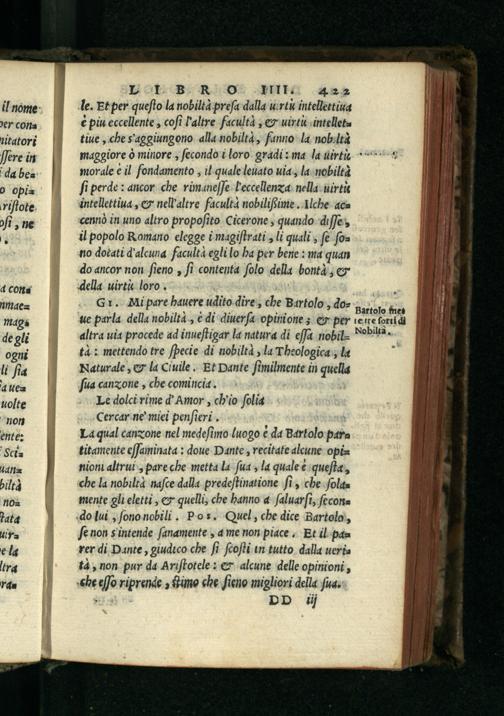 il nome
per con=
mitatori
essere in
i da be=
o opi=
ristote
osi, ne
a con=
mmae=
mag=
de gli
ogni
li sia
a ue=
uolte
non
ente:
Sci=
uan=
biltà
no=
tata
uir=
e la
ltra
ora=
LIBRO IIII. 422
le. Et per questo la nobiltà presa dalla uirtù intellettiua
è piu eccellente, così l'altre facultà, & uirtù intellet=
tiue, che s'aggiungono alla nobiltà, fanno la nobiltà
maggiore ò minore, secondo i loro gradi: ma la uirtù
morale è il fondamento, il quale leuato uia, la nobiltà
si perde: ancor che rimanesse l'eccellenza nella uirtù
intellettiua, & nell'altre facultà nobilissime. Ilche ac=
cennò in uno altro proposito Cicerone, quando disse,
il popolo Romano elegge i magistrati, li quali, se so=
no dotati d'alcuna facultà egli lo ha per bene: ma quan
do ancor non sieno, si contenta solo della bontà, &
della uirtù loro.
GI. Mi pare hauere udito dire, che Bartolo, do=
ue parla della nobiltà, è di diuersa opinione; & per
altra uia procede ad inuestigar la natura di essa nobil=
tà: mettendo tre specie di nobiltà, la Theologica, la
Naturale, & la Ciuile. Et Dante similmente in quella
sua canzone, che comincia.
Le dolci rime d'Amor, ch'io solia
Cercar ne' miei pensieri.
La qual canzone nel medesimo luogo è da Bartolo par=
titamente essaminata: doue Dante, recitate alcune opi=
nioni altrui, pare che metta la sua, la quale è questa,
che la nobiltà nasce dalla predestinatione sì, che sola=
mente gli eletti, & quelli, che hanno a saluarsi, secon=
do lui, sono nobili. POS. Quel, che dice Bartolo,
se non s'intende sanamente, a me non piace. Et il pa=
rer di Dante, giudico che si scosti in tutto dalla ueri=
tà, non pur da Aristotele: & alcune delle opinioni,
che esso riprende, stimo che sieno migliori della sua.
DD iij
Bartolo met
te tre sorti di
Nobiltà.